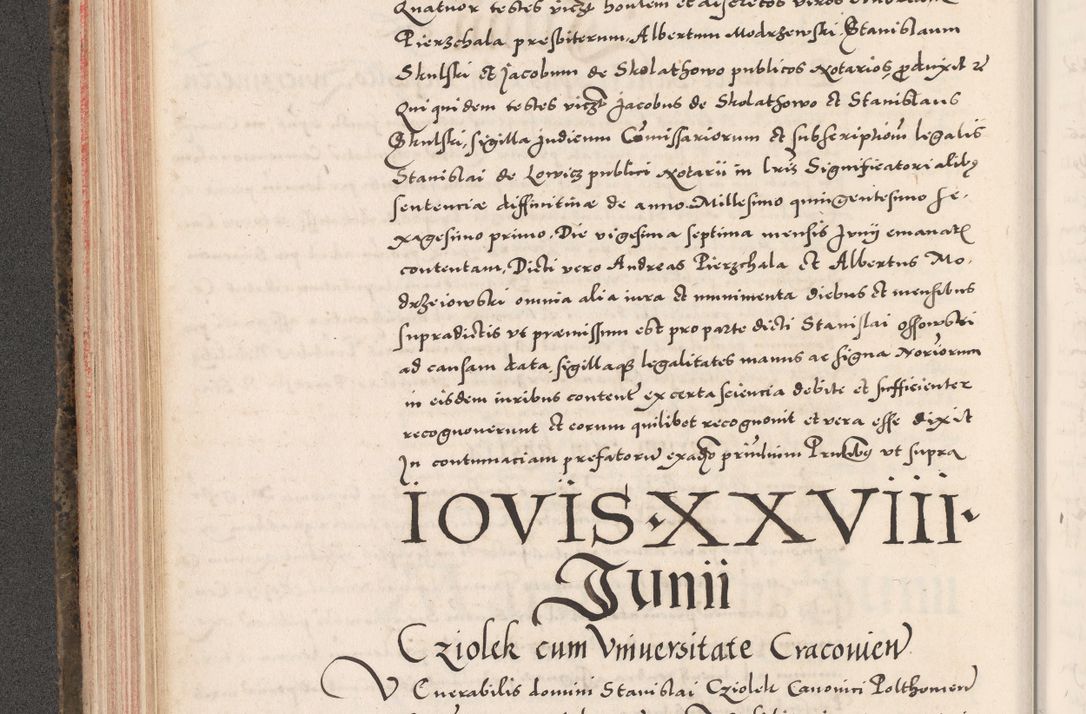 Quatuor testes vicz honlem et discretos viros
Pierzchala presbiterum, Albertum Modrzewski, Stanislaum
Skulski et Jacobum de Skolathowo publicos Notarios, produxit
Qui quidem testes viczt Jacobus de Skolathowo et Stanislaus
Skulski, sigilla judicum Comissariorum et subscriptiom legalis
Stanislai de Lowicz publici Notarii in lris Significatorialibus
sententiae diffinitivae de anno Millesimo quingentesimo se-
xagesimo primo. Die vigesima septima mensis Junij emanat
contentam, Dicti vero Andreas Pierzchala et Albertus Mo-
drzeiowski omnia alia iura et munimenta diebus et mensibus
supradictis ut praemissum est pro parte dicti Stanislai Ossowski
ad causam data, sigillaque legalitates manus ac signa Notoriorum
in eisdem iuribus content ex certa sciencia debite et sufficienter
recognoverunt et eorum quilibet recognouit et vera esse dixit
In contumaciam prefatorum ut supra
IOVIS · XXVIII ·
Junii
Cziolek cum Vniuersitate Cracouien
Venerabilis domini Stanislai Cziolek Canonici Polthouien